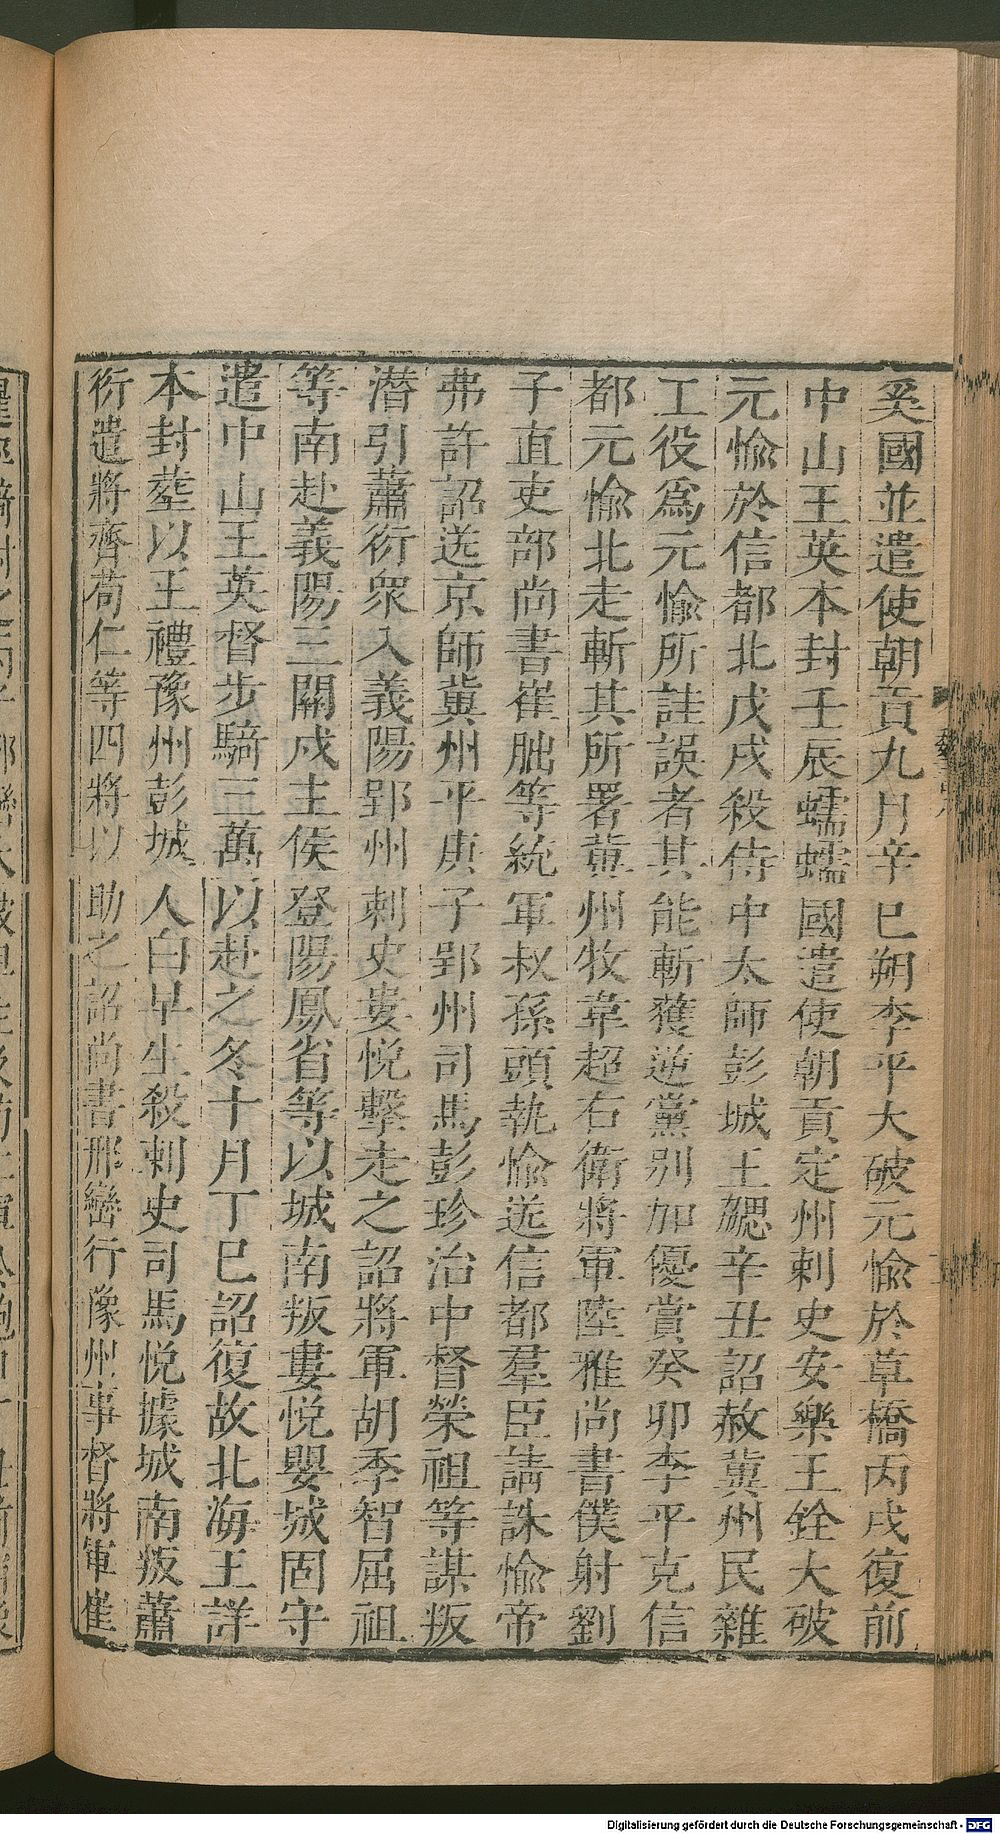 奚國並遣使朝貢九月辛巳朔李平大破元愉於草橋丙戌復前
中山王英本封壬辰蠕蠕國遣使朝貢定州刺史安樂王銓大破
元愉於信都北戊戌殺侍中太師彭城王勰辛丑詔赦冀州民雜
工役爲元愉所詿誤者其能斬獲逆黨別加優賞癸卯李平克信
都元愉北走斬其所署冀州牧韋超右衛將軍陸雅尚書僕射劉
子直吏部尚書崔朏等統軍叔孫頭執愉送信都羣臣請誅愉帝
弗許詔送京師冀州平庚子郢州司馬彭珍治中督榮祖等謀叛
潛引蕭衍衆入義陽郢州刺史婁悅擊走之詔將軍胡季智屈祖
等南赴義陽三關戍主侯登陽鳳省等以城南叛婁悅嬰城固守
遣中山王英督步騎三萬以赴之冬十月丁巳詔復故北海王詳
本封葬以王禮豫州彭城人白早生殺刺史司馬悅據城南叛蕭
衍遣將齊苟仁等四將以助之詔尚書邢巒行豫州事督將軍崔
Digitalisierung gefördert durch die Deutsche Forschungsgemeinschaft - DFG